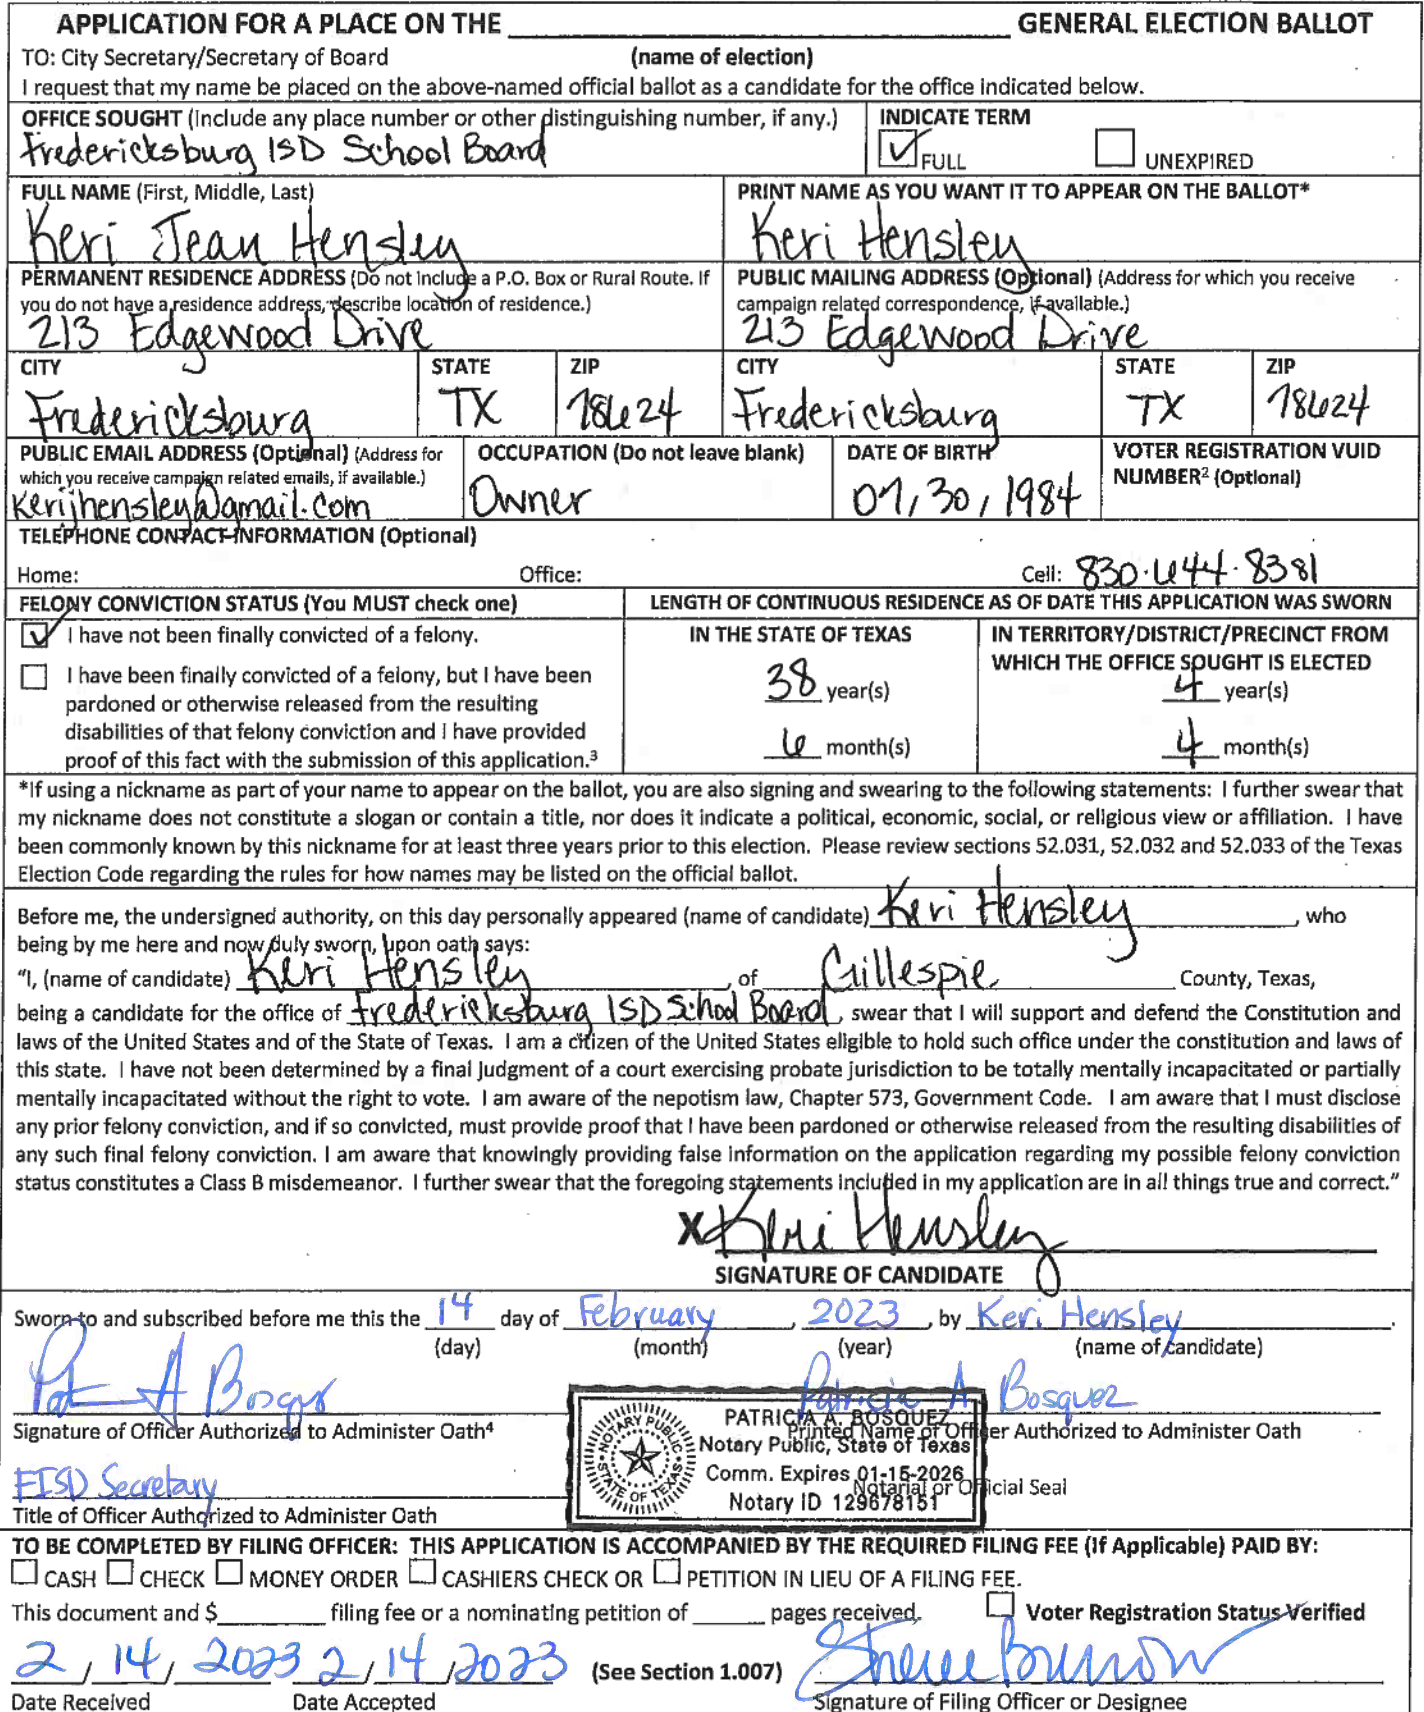 APPLICATION FOR A PLACE ON THE ____ GENERAL ELECTION BALLOT
TO: City Secretary/Secretary of Board (name of election)
I request that my name be placed on the above-named official ballot as a candidate for the office indicated below.
OFFICE SOUGHT (Include any place number or other distinguishing number, if any.) INDICATE TERM
Fredericksburg ISD School Board ✓ FULL UNEXPIRED
FULL NAME (First, Middle, Last) PRINT NAME AS YOU WANT IT TO APPEAR ON THE BALLOT*
Keri Jean Hensley Keri Hensley
PERMANENT RESIDENCE ADDRESS (Do not include a P.O. Box or Rural Route. If you do not have a residence address, describe location of residence.)
213 Edgewood Drive
PUBLIC MAILING ADDRESS (Optional) (Address for which you receive campaign related correspondence, if available.)
213 Edgewood Drive
CITY STATE ZIP CITY STATE ZIP
Fredericksburg TX 78624 Fredericksburg TX 78624
PUBLIC EMAIL ADDRESS (Optional) (Address for which you receive campaign related emails, if available.)
kerijhensley@gmail.com
OCCUPATION (Do not leave blank)
Owner
DATE OF BIRTH
07/30/1984
VOTER REGISTRATION VUID NUMBER² (Optional)
TELEPHONE CONTACT INFORMATION (Optional)
Home: Office: Cell: 830.644.8381
FELONY CONVICTION STATUS (You MUST check one)
✓ I have not been finally convicted of a felony.
I have been finally convicted of a felony, but I have been
pardoned or otherwise released from the resulting
disabilities of that felony conviction and I have provided
proof of this fact with the submission of this application.³
LENGTH OF CONTINUOUS RESIDENCE AS OF DATE THIS APPLICATION WAS SWORN
IN THE STATE OF TEXAS
38 year(s)
6 month(s)
IN TERRITORY/DISTRICT/PRECINCT FROM
WHICH THE OFFICE SOUGHT IS ELECTED
4 year(s)
4 month(s)
*If using a nickname as part of your name to appear on the ballot, you are also signing and swearing to the following statements: I further swear that
my nickname does not constitute a slogan or contain a title, nor does it indicate a political, economic, social, or religious view or affiliation. I have
been commonly known by this nickname for at least three years prior to this election. Please review sections 52.031, 52.032 and 52.033 of the Texas
Election Code regarding the rules for how names may be listed on the official ballot.
Before me, the undersigned authority, on this day personally appeared (name of candidate) Keri Hensley, who
being by me here and now duly sworn, upon oath says:
"I, (name of candidate) Keri Hensley, of Gillespie County, Texas,
being a candidate for the office of Fredericksburg ISD School Board, swear that I will support and defend the Constitution and
laws of the United States and of the State of Texas. I am a citizen of the United States eligible to hold such office under the constitution and laws of
this state. I have not been determined by a final judgment of a court exercising probate jurisdiction to be totally mentally incapacitated or partially
mentally incapacitated without the right to vote. I am aware of the nepotism law, Chapter 573, Government Code. I am aware that I must disclose
any prior felony conviction, and if so convicted, must provide proof that I have been pardoned or otherwise released from the resulting disabilities of
any such final felony conviction. I am aware that knowingly providing false information on the application regarding my possible felony conviction
status constitutes a Class B misdemeanor. I further swear that the foregoing statements included in my application are in all things true and correct."
X Keri Hensley
SIGNATURE OF CANDIDATE
Sworn to and subscribed before me this the 14 day of February, 2023, by Keri Hensley.
(day) (month) (year) (name of candidate)
Pat A Bosquez Patricia A. Bosquez
Signature of Officer Authorized to Administer Oath⁴ Printed Name of Officer Authorized to Administer Oath
FISD Secretary Notarial or Official Seal
Title of Officer Authorized to Administer Oath
NOTARY PUBLIC STATE OF TEXAS
PATRICIA A. BOSQUEZ
Notary Public, State of Texas
Comm. Expires 01-15-2026
Notary ID 129678151
TO BE COMPLETED BY FILING OFFICER: THIS APPLICATION IS ACCOMPANIED BY THE REQUIRED FILING FEE (If Applicable) PAID BY:
CASH CHECK MONEY ORDER CASHIERS CHECK OR PETITION IN LIEU OF A FILING FEE.
This document and $____ filing fee or a nominating petition of ____ pages received. Voter Registration Status Verified
2/14/2023 2/14/2023 (See Section 1.007)
Date Received Date Accepted Signature of Filing Officer or Designee